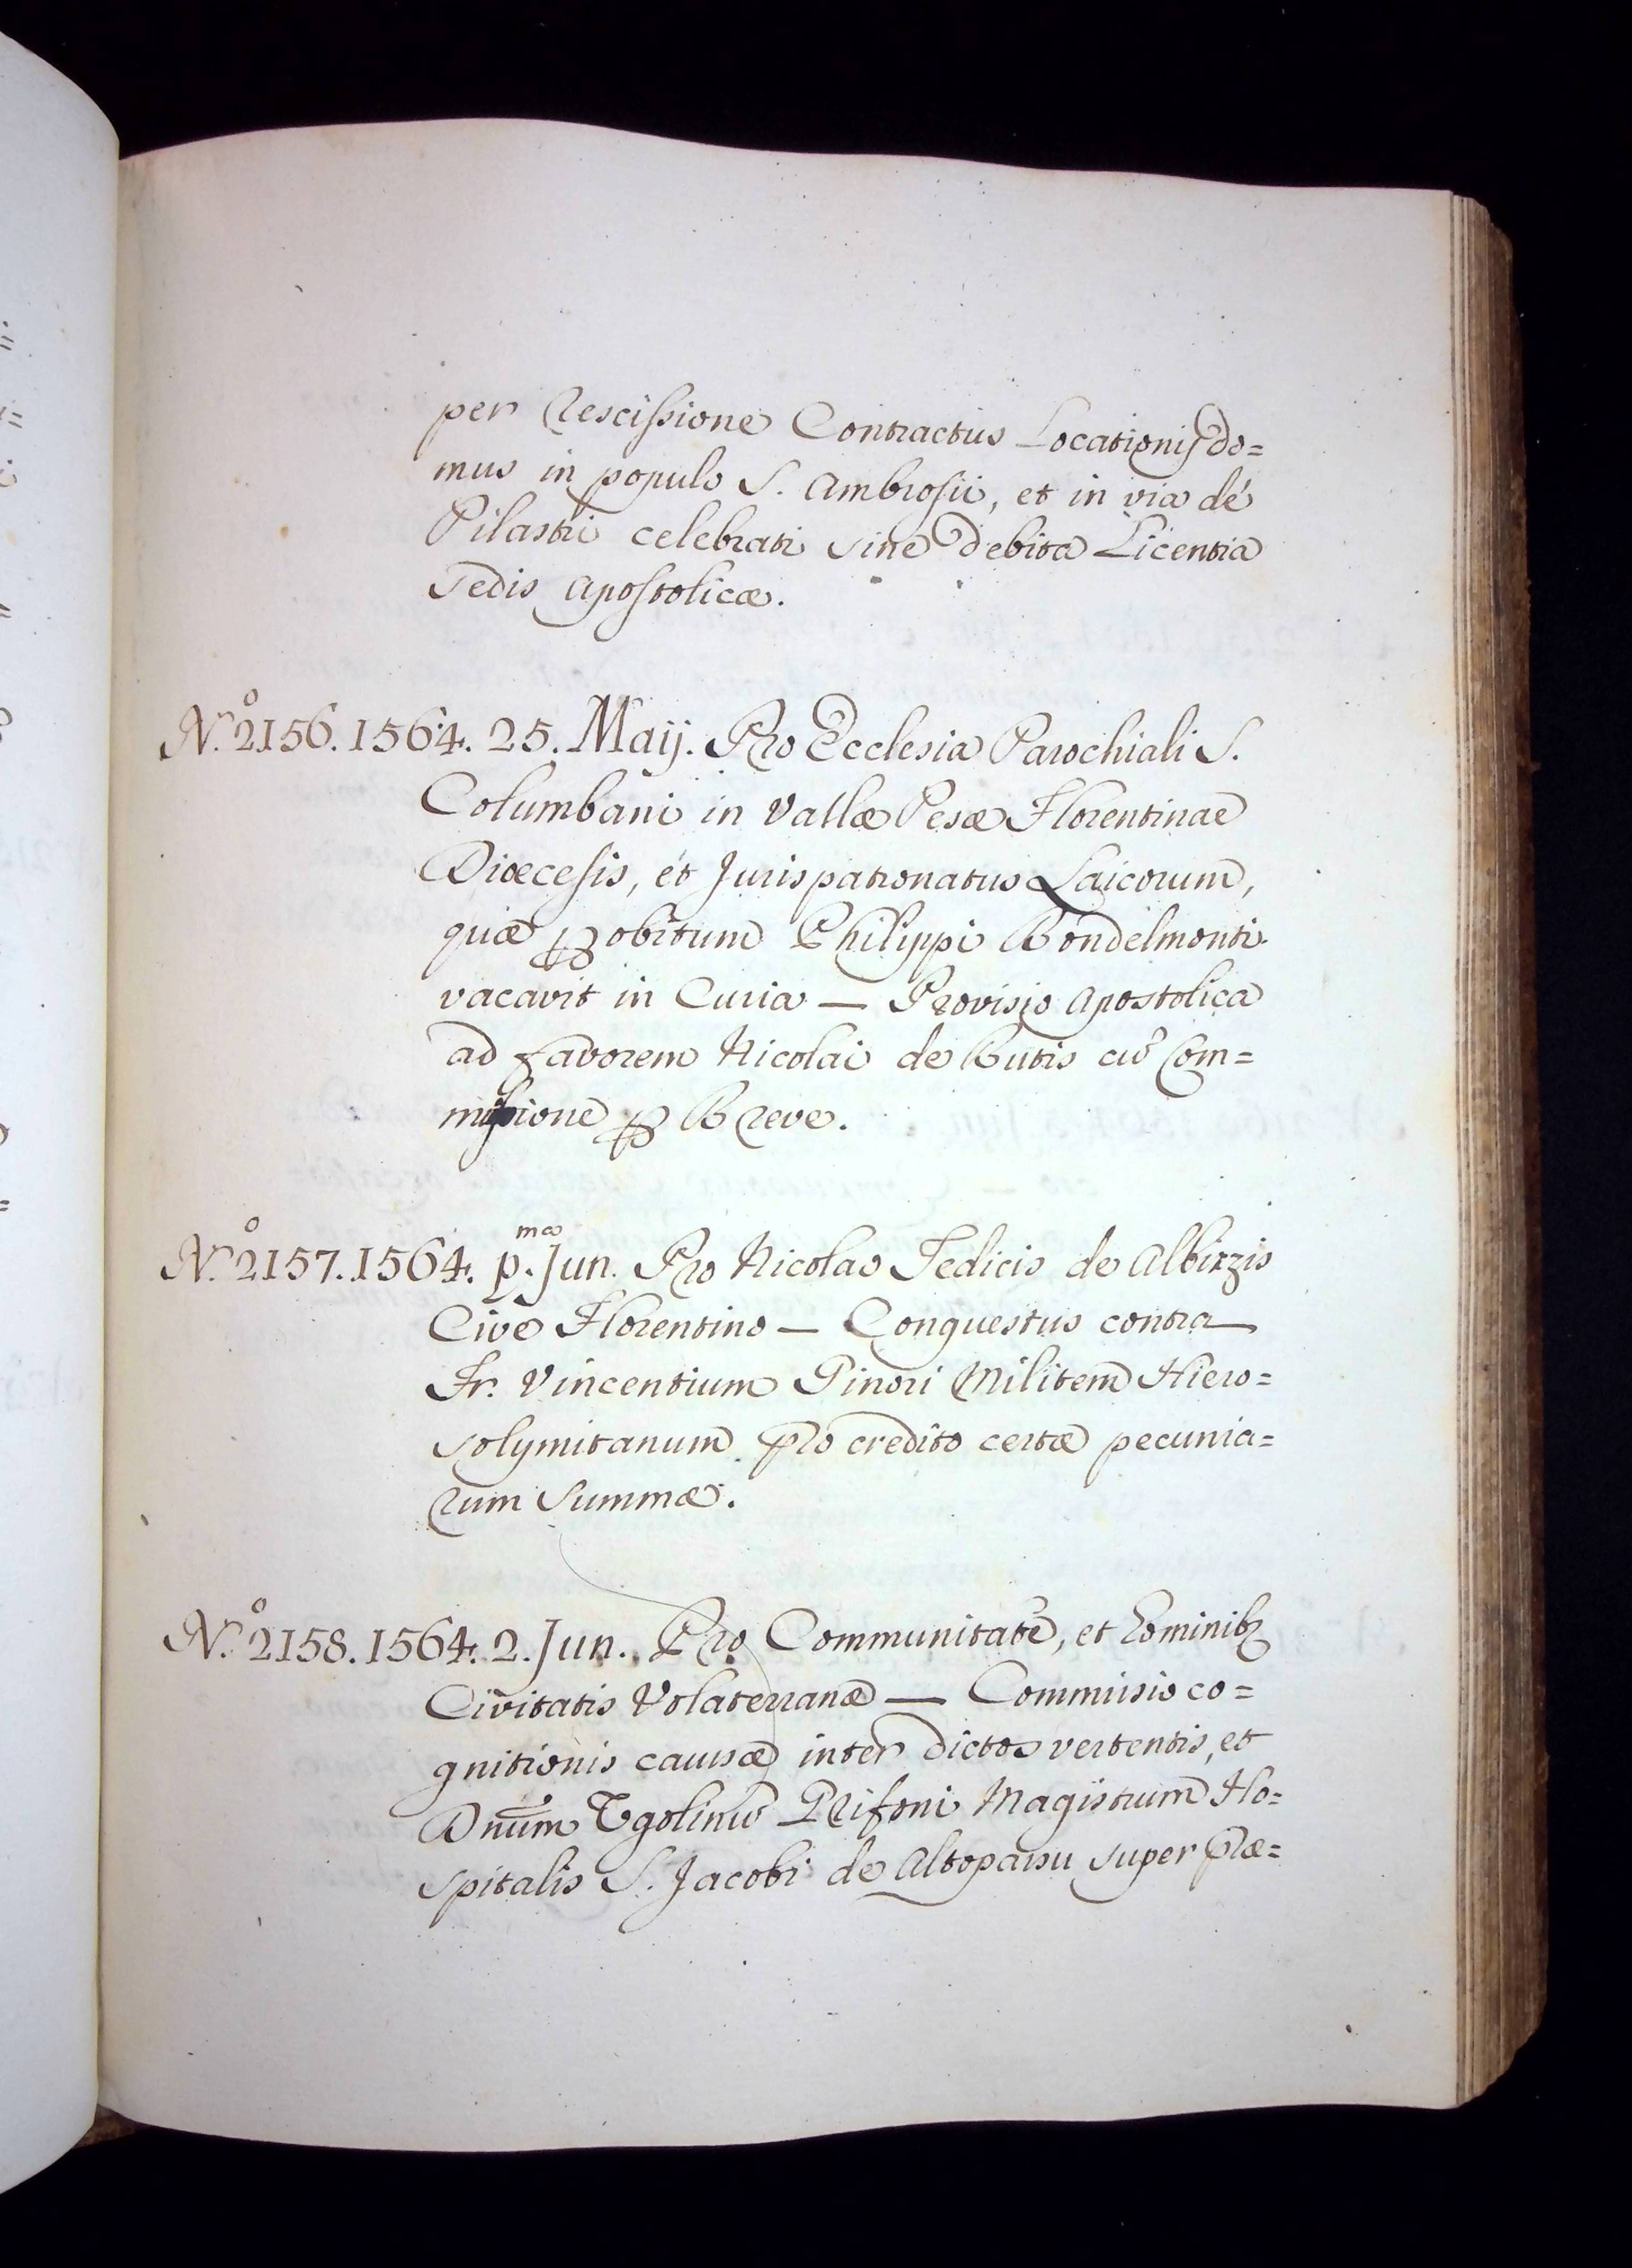 per Rescissione Contractus Locationis do=
mus in populo S. Ambrosii, et in via dé
Pilastri celebrati sine debita Licentia
Sedis Apostolicæ.
N.º 2156. 1564. 25. Maij. Pro Ecclesia Parochiali S.
Columbani in Vallæ Pesæ Florentinae
Diœcesis, et Jurispatronatus Laicorum,
quæ ꝑ obitum Philippi Bondelmonti
vacavit in Curia — Provisio Apostolica
ad favorem Nicolai de Butis cũ Com=
missione ꝑ Breve.
N.º 2157. 1564. p.mo Jun. Pro Nicolao Tedicis de Albizzis
Cive Florentino — Conquestus contra
Fr. Vincentium Ginori Militem Hiero=
solymitanum pro credito certæ pecunia=
rum Summæ.
N.º 2158. 1564. 2. Jun. Pro Communitate, et hominibꝫ
Civitatis Volaterranæ — Commissio co=
gnitionis causæ inter dictos vertentis, et
Dnũm Ugolinũ Grifoni Magistrum Ho=
spitalis S. Jacobi de Altopassu super præ=